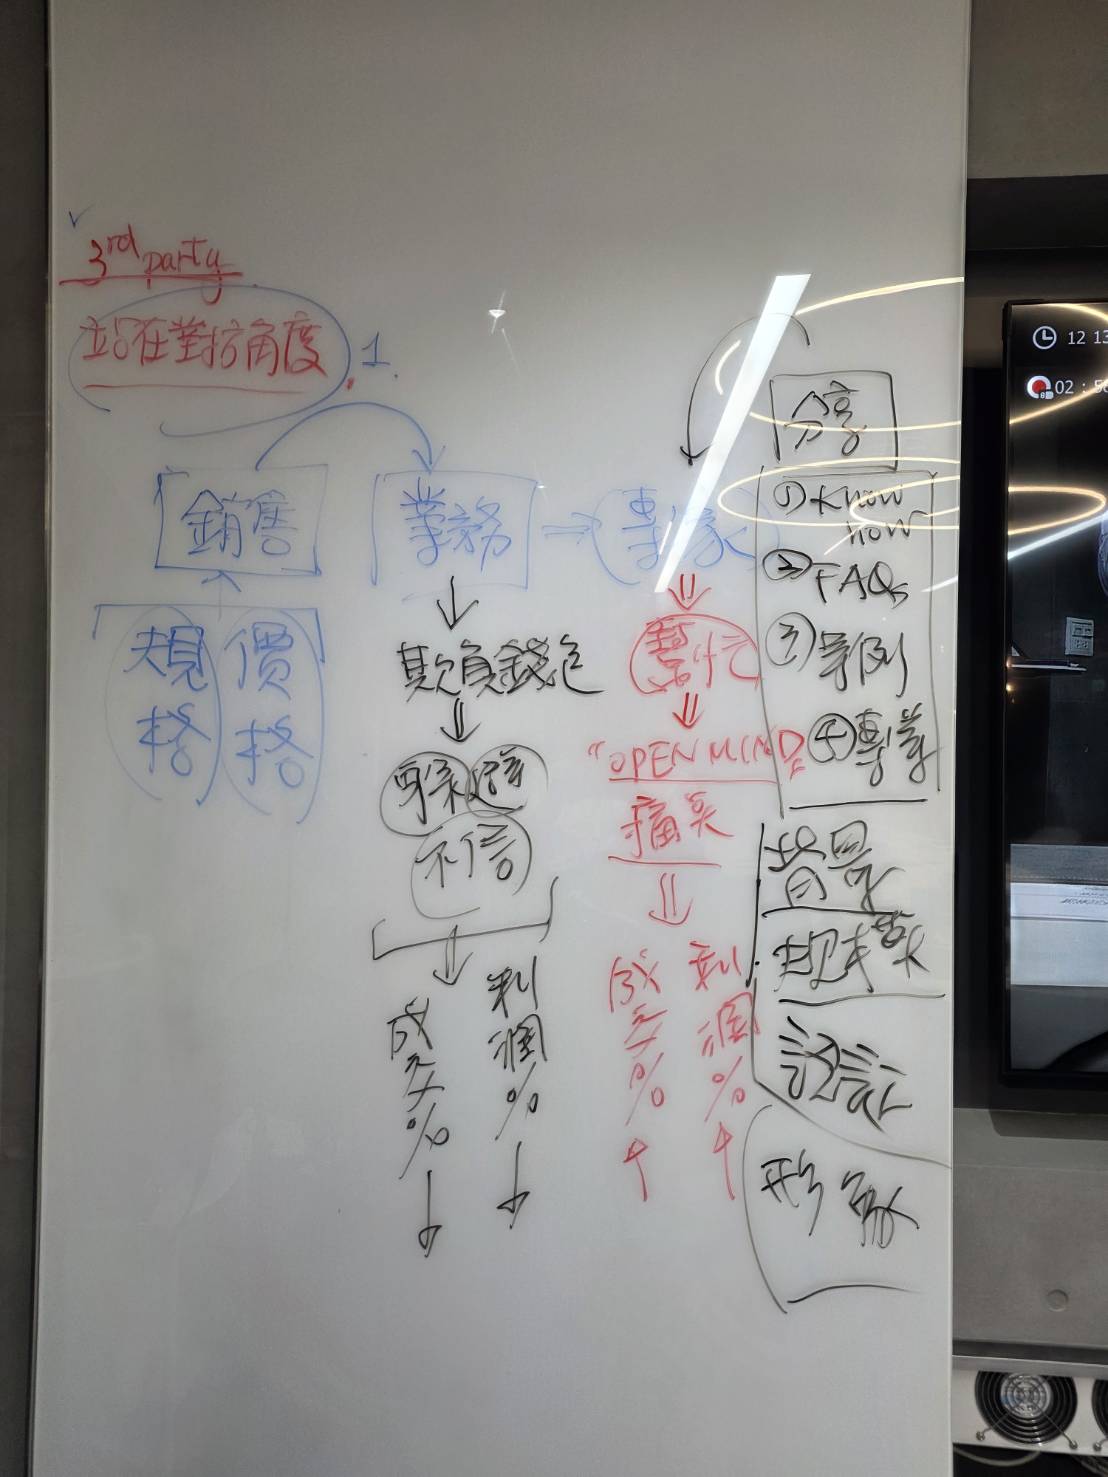 3rd party
站在對方角度
1.
銷售
業務
專家
規格
價格
欺負錢包
不信
成交% 利潤%
幫忙
"OPEN MIND"
痛點
成交% 利潤%
分享
① Know how
② FAQs
③ 案例
④ 專業
背景
現荣
認証
形象
12 13
02 : 5